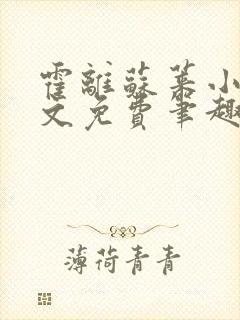 霍離蘇菤小
文免費筆趣
薄荷青青